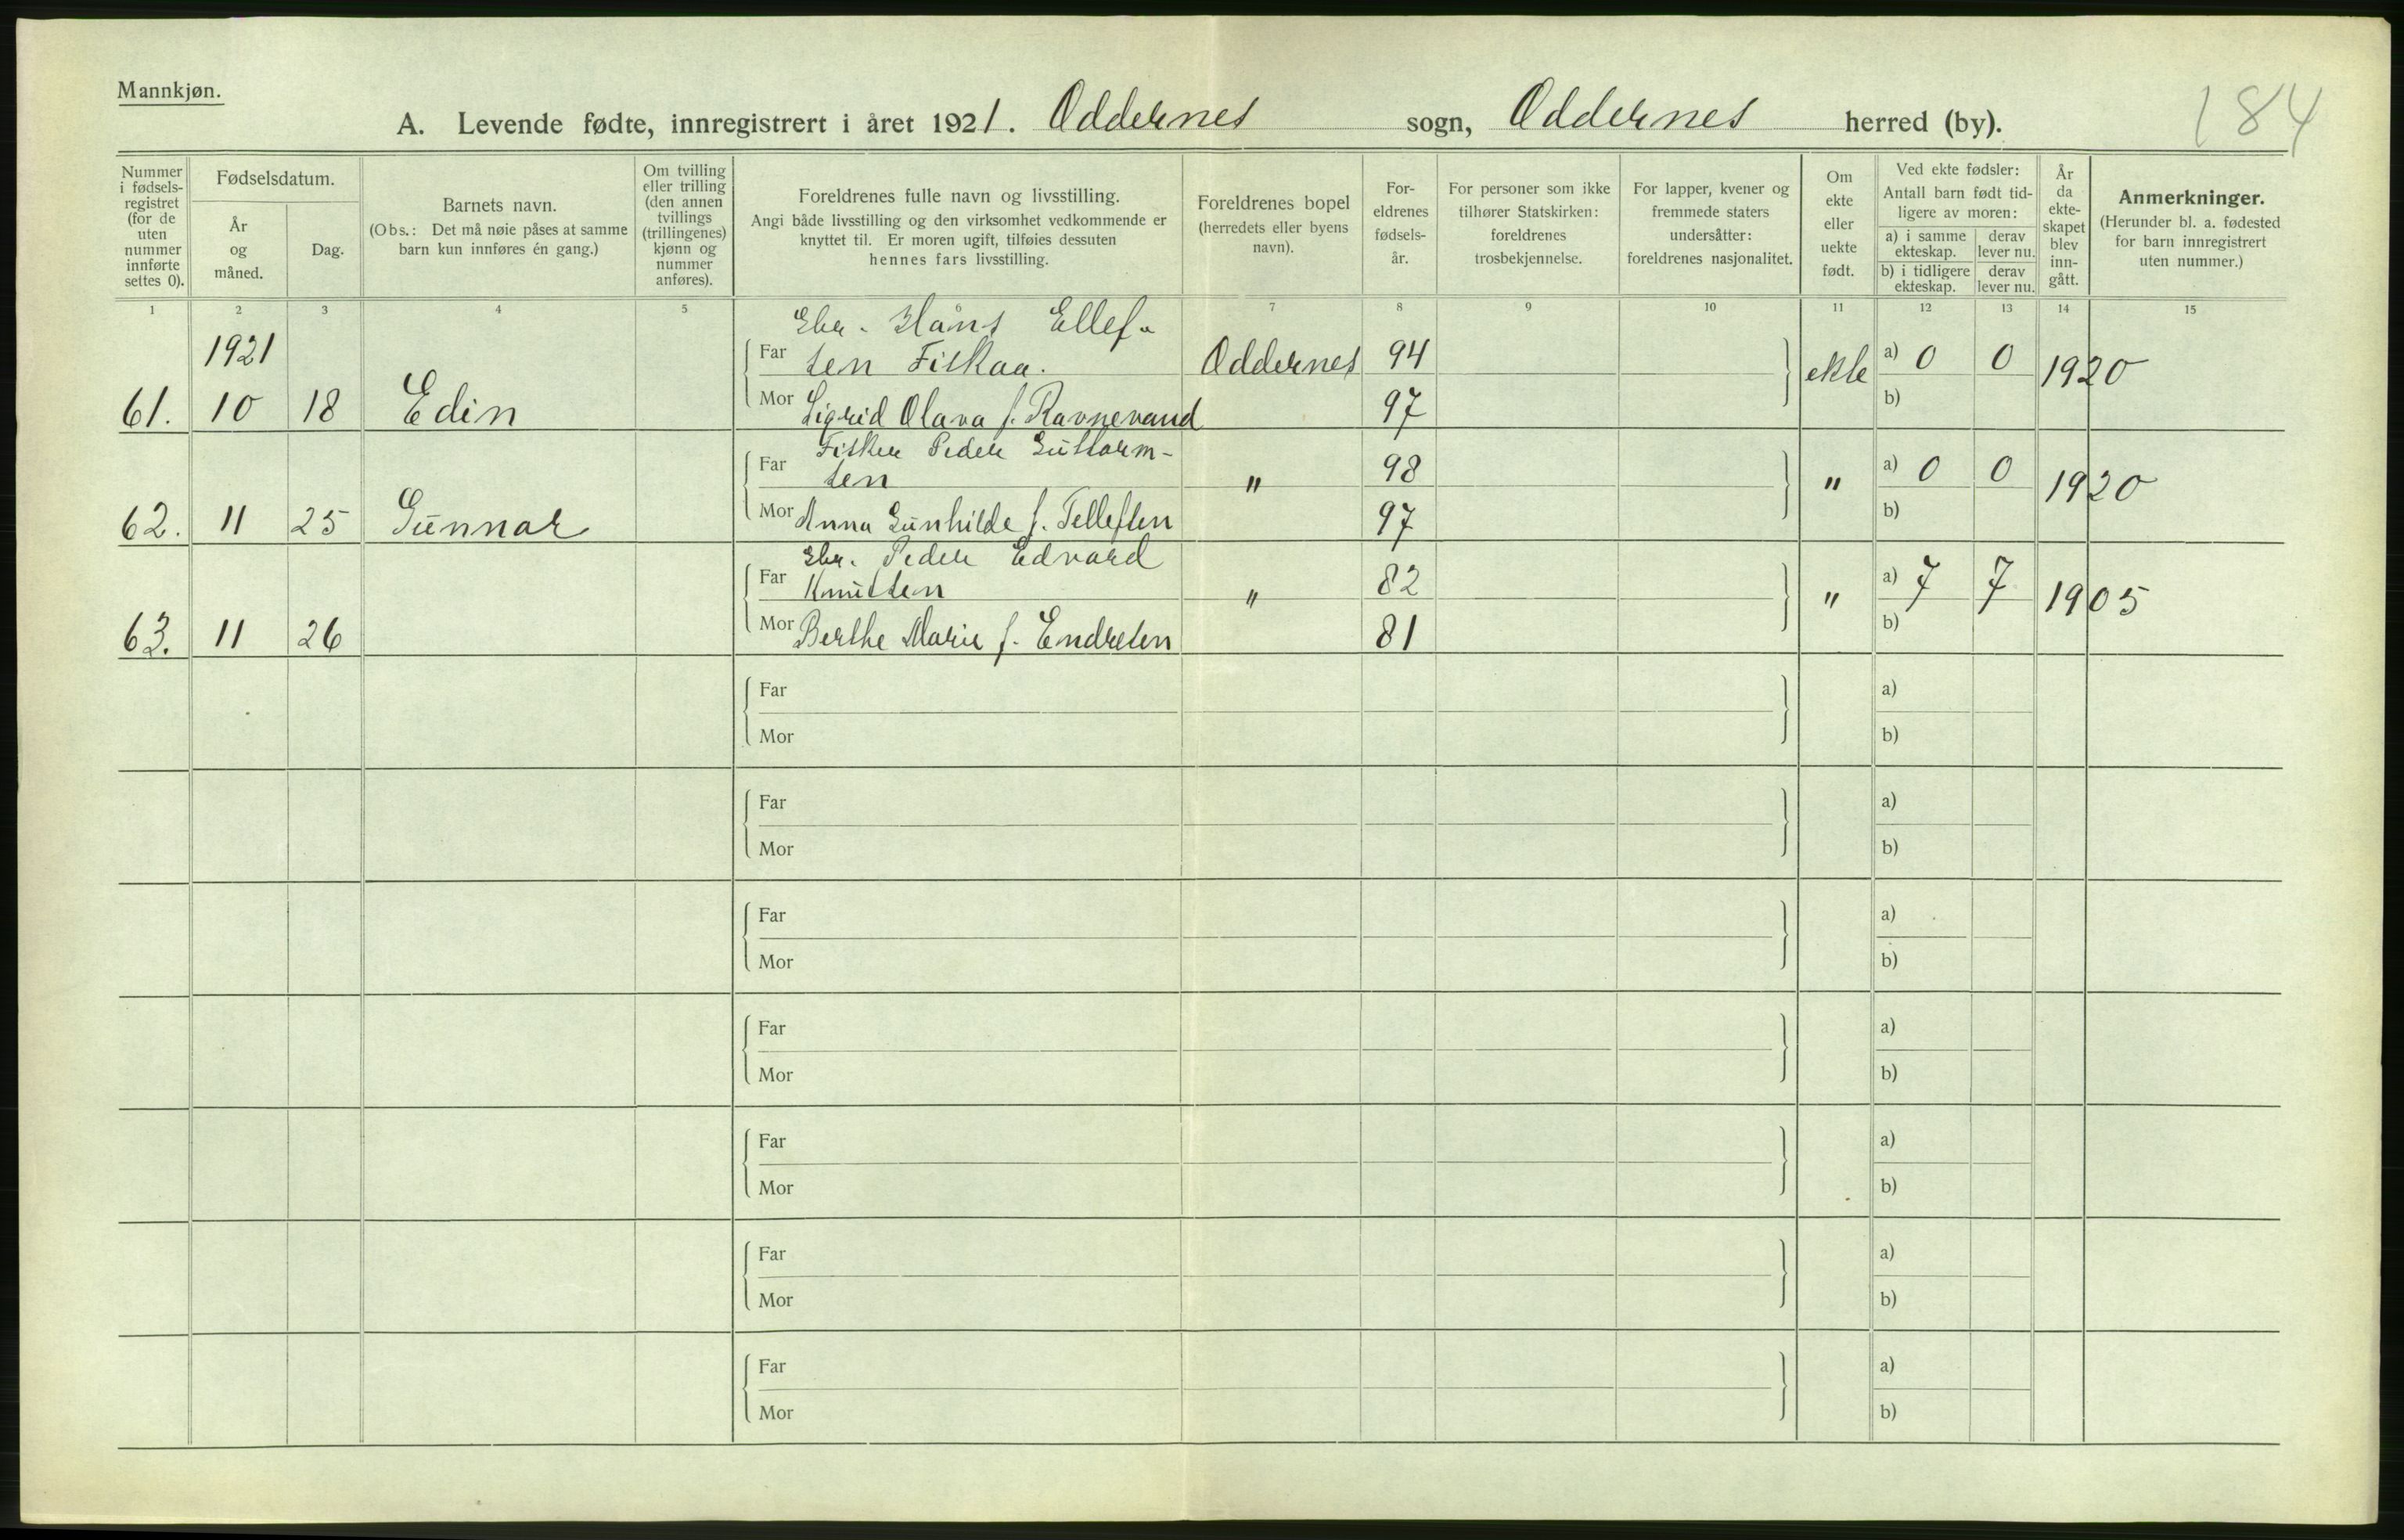 Mannkjøn.
184
A. Levende fødte, innregistrert i året 1921. Oddernes sogn, Oddernes herred (by).
Nummer i fødselsregistret (for de uten nummer innførte settes 0).
Fødselsdatum.
År og måned.
Dag.
Barnets navn.
(Obs.: Det må nøie påses at samme barn kun innføres én gang.)
Om tvilling eller trilling (den annen tvillings (trillingenes) kjønn og nummer anføres).
Foreldrenes fulle navn og livsstilling.
Angi både livsstilling og den virksomhet vedkommende er knyttet til. Er moren ugift, tilføies dessuten hennes fars livsstilling.
Foreldrenes bopel
(herredets eller byens navn).
Foreldrenes fødselsår.
For personer som ikke tilhører Statskirken: foreldrenes trosbekjennelse.
For lapper, kvener og fremmede staters undersåtter: foreldrenes nasjonalitet.
Om ekte eller uekte født.
Ved ekte fødsler:
Antall barn født tidligere av moren:
a) i samme ekteskap. derav lever nu.
b) i tidligere ekteskap. derav lever nu.
År da ekteskapet blev inngått.
Anmerkninger.
(Herunder bl. a. fødested for barn innregistrert uten nummer.)
1 2 3 4 5 7 8 9 10 11 12 13 14 15
Ebr. Hans Ellef-
1921 Far sen Fiskaa. Oddernes 94 ekte a) 0 0 1920
61. 10 18 Edin Mor Sigrid Olava f. Ravnevand 97 b)
Fisker Peder Guttorm-
Far sen " 98 " a) 0 0 1920
62. 11 25 Gunnar Mor Anna Gunhilde f. Tellefsen 97 b)
Ebr. Peder Edvard
Far Knutsen " 82 " a) 7 7 1905
63. 11 26 Mor Berthe Marie f. Endresen 81 b)
Far a)
Mor b)
Far a)
Mor b)
Far a)
Mor b)
Far a)
Mor b)
Far a)
Mor b)
Far a)
Mor b)
Far a)
Mor b)